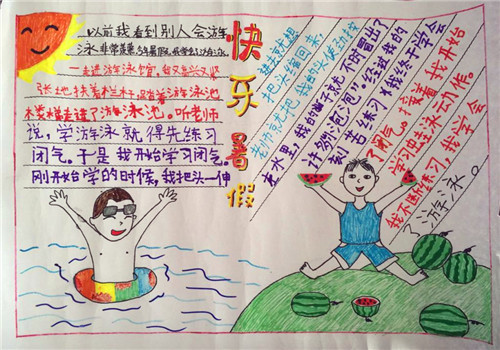 快乐暑假
以前我看到别人会游
泳非常羡慕,今年暑假,我学会了游泳。
一走进游泳馆,我又高兴又紧
张地扶着栏杆,踏着游泳池
楼梯走进了游泳池。听老师
说,学游泳就得先练习
闭气。于是我开始学习闭气。
刚开始学的时候,我把头一伸
进水里就想
把头缩回来,
老师就把我的头
在水里,我的脑子就不时冒出了
许多小“泡泡”经过我的
刻苦练习我终于学会
了闭气。接着,我开始
学习蛙泳动作。
我不断练习,我学会
了游泳。